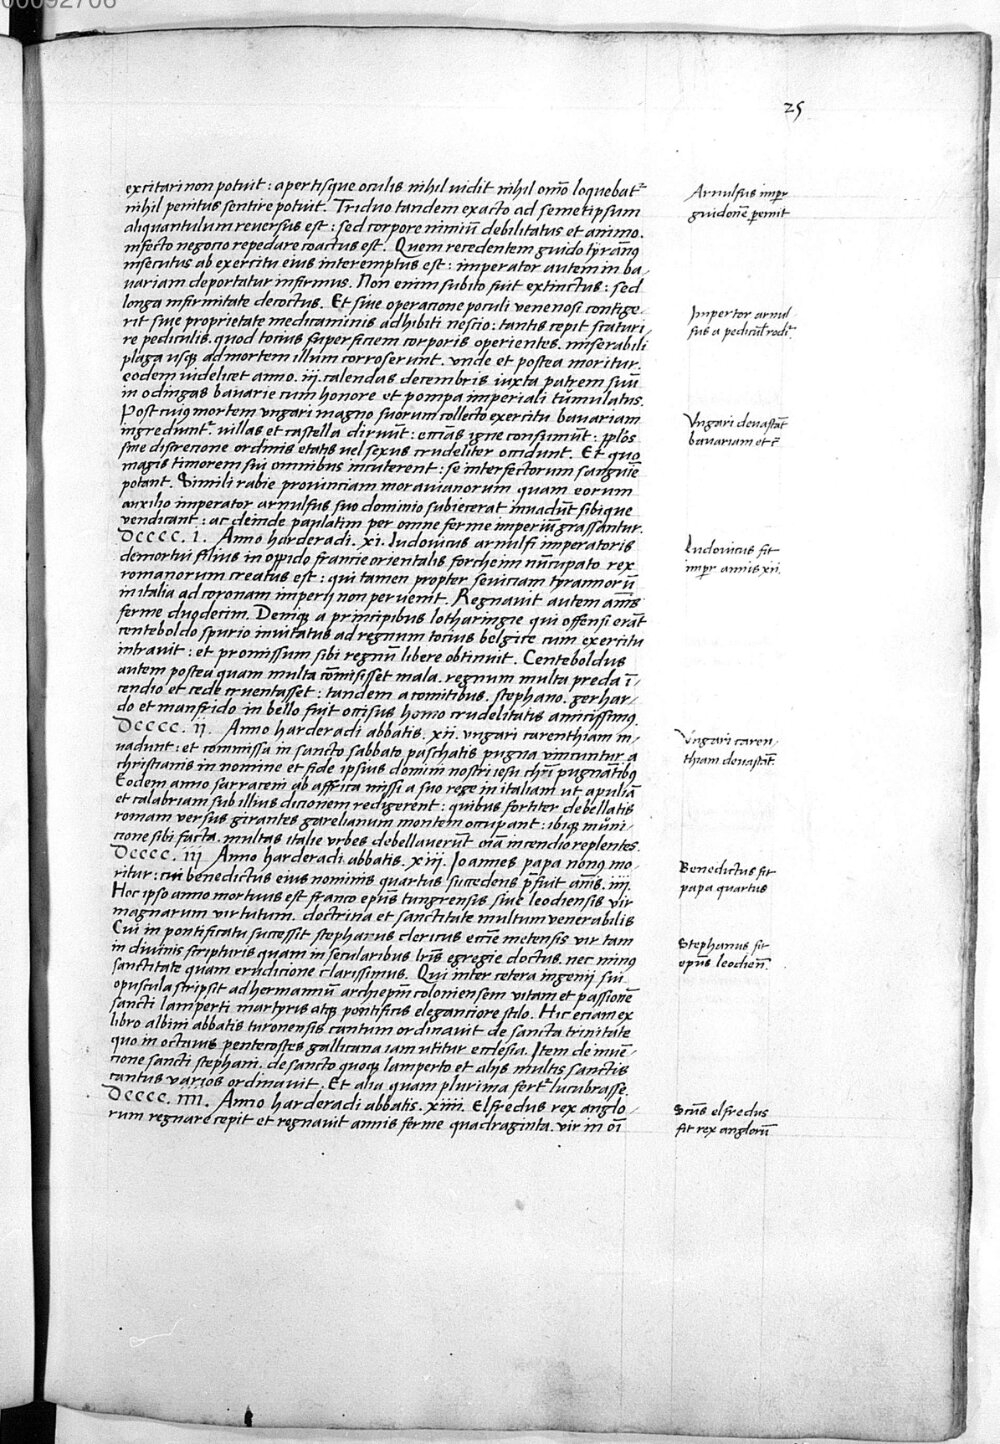 25
excitari non potuit : apertisque oculis nihil uidit nihil om̅o loquebat᷑
nihil penitus sentire potuit. Triduo tandem exacto ad semetipsum
aliquantulum reuersus est : sed corpore nimiū debilitatus et animo.
infecto negocio repedare coactus est. Quem recedentem guido tyrān9
insecutus ab exercitu eius interemptus est : imperator autem in ba/
uariam deportatur infirmus. Non enim subito fuit extinctus : sed
longa infirmitate decoctus. Et siue operacione poculi venenosi contige/
rit siue proprietate medicaminis adhibiti nescio : tantis cepit scaturi/
re pediculis. quod tocius superficiem corporis operientes. miserabili
plaga usq; ad mortem illum corroserunt. vnde et postea moritur.
eodem uidelicet anno. iij. calendas decembris iuxta patrem suū
in odingas bauarie cum honore et pompa imperiali tumulatus.
Post cui9 mortem vngari magno suorum collecto exercitu bauariam
ingrediunt᷑ villas et castella diruūt : ecc̅ias igne consumūt : ip̅los
sine discrecione ordinis etatis uel sexus crudeliter occidunt. Et quo
magis timorem sui omnibus incuterent : se interfectorum sanguīe
potant. Simili rabie prouinciam morauianorum quam eorum
auxilio imperator arnulfus suo dominio subiecerat inuadūt sibique
vendicant : ac deinde paulatim per omne ferme imperiū grassantur.
DCCCC. I. Anno harderadi. xi. Iudouicus arnulfi imperatoris
demortui filius in oppido francie orientalis forcheim nūcupato rex
romanorum creatus est : qui tamen propter seuiciam tyrannorū
in italia ad coronam imperij non peruenit. Regnauit autem annis
ferme duodecim. Deniq; a principibus lotharingie qui offensi erāt
centeboldo spurio inuitatus ad regnum tocius belgice cum exercitu
intrauit : et promissum sibi regnū libere obtinuit. Centeboldus
autem postea quam multa cōmisisset mala. regnum multa preda ī/
cendio et cede cruentasset : tandem a comitibus. stephano. gerhar/
do et manfrido in bello fuit occisus homo crudelitatis amicissim9.
DCCCC. ij. Anno harderadi abbatis. xij. vngari carenthiam in/
uadunt : et commissa in sancto sabbato paschatis pugna vincuntur a
christianis in nomine et fide ipsius domini nostri iesu chr̅i pugnātib9
Eodem anno sarraceni ab affrica missi a suo rege in italiam ut apuliā
et calabriam sub illius dicionem redigerent : quibus fortiter debellatis
romam versus girantes garelianum montem occupant : ibiq; mūni/
cione sibi facta. multas italie vrbes debellauerūt oīa incendio replentes.
DCCCC. iij Anno harderadi abbatis. xiij. Ioannes papa non9 mo/
ritur : cui benedictus eius nominis quartus succedens p̅fuit annis. iiij.
Hoc ipso anno mortuus est franco ep̅us tungrensis siue leodiensis vir
magnarum virtutum. doctrina et sanctitate multum venerabilis
Cui in pontificatu successit stephanus clericus ecc̅ie metensis vir tam
in diuinis scripturis quam in secularibus l̅ris egregie doctus. nec min9
sanctitate quam erudicione clarissimus. Qui inter cetera ingenij sui
opuscula scripsit ad hermannū archiep̅m coloniensem vitam et passionē
sancti lamperti martyris atq; pontificis eleganciore stilo. Hic eciam ex
libro albini abbatis turonensis cantum ordinauit de sancta trinitate
quo in octauis pentecostes gallicana iam utitur ecclesia. Item de inuē/
cione sancti stephani. de sancto quoq; lamperto et alijs multis sanctis
cantus varios ordinauit. Et alia quam plurima fert᷑ lucubrasse.
DCCCC. iiij. Anno harderadi abbatis. xiiij. Elfredus rex anglo/
rum regnare cepit et regnauit annis ferme quadraginta. vir in oī
Arnulfus imp̅r
guidonē pemit
Impertor arnul/
fus a pedicul̅ rodit᷑.
Vngari deuastāt
bauariam et c̅
Iudouicus fit
imp̅r annis xii.
Vngari caren/
thiam deuastāt.
Benedictus fit
papa quartus
Stephanus fit
ep̅us leodien̅.
Sc̅us elfredus
fit rex anglorū